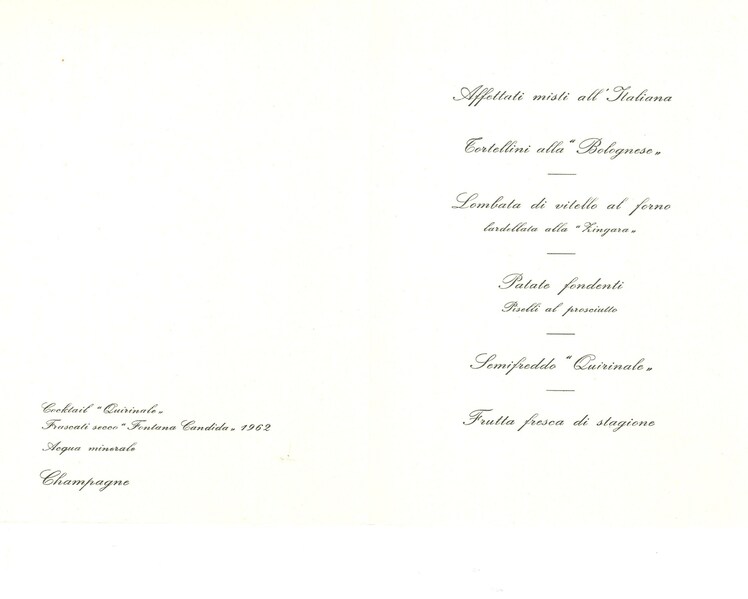 Cocktail "Quirinale„
Frascati secco "Fontana Candida„ 1962
Acqua minerale
Champagne
Affettati misti all'Italiana
Tortellini alla "Bolognese„
Lombata di vitello al forno
lardellata alla "Zingara„
Patate fondenti
Piselli al prosciutto
Semifreddo "Quirinale„
Frutta fresca di stagione